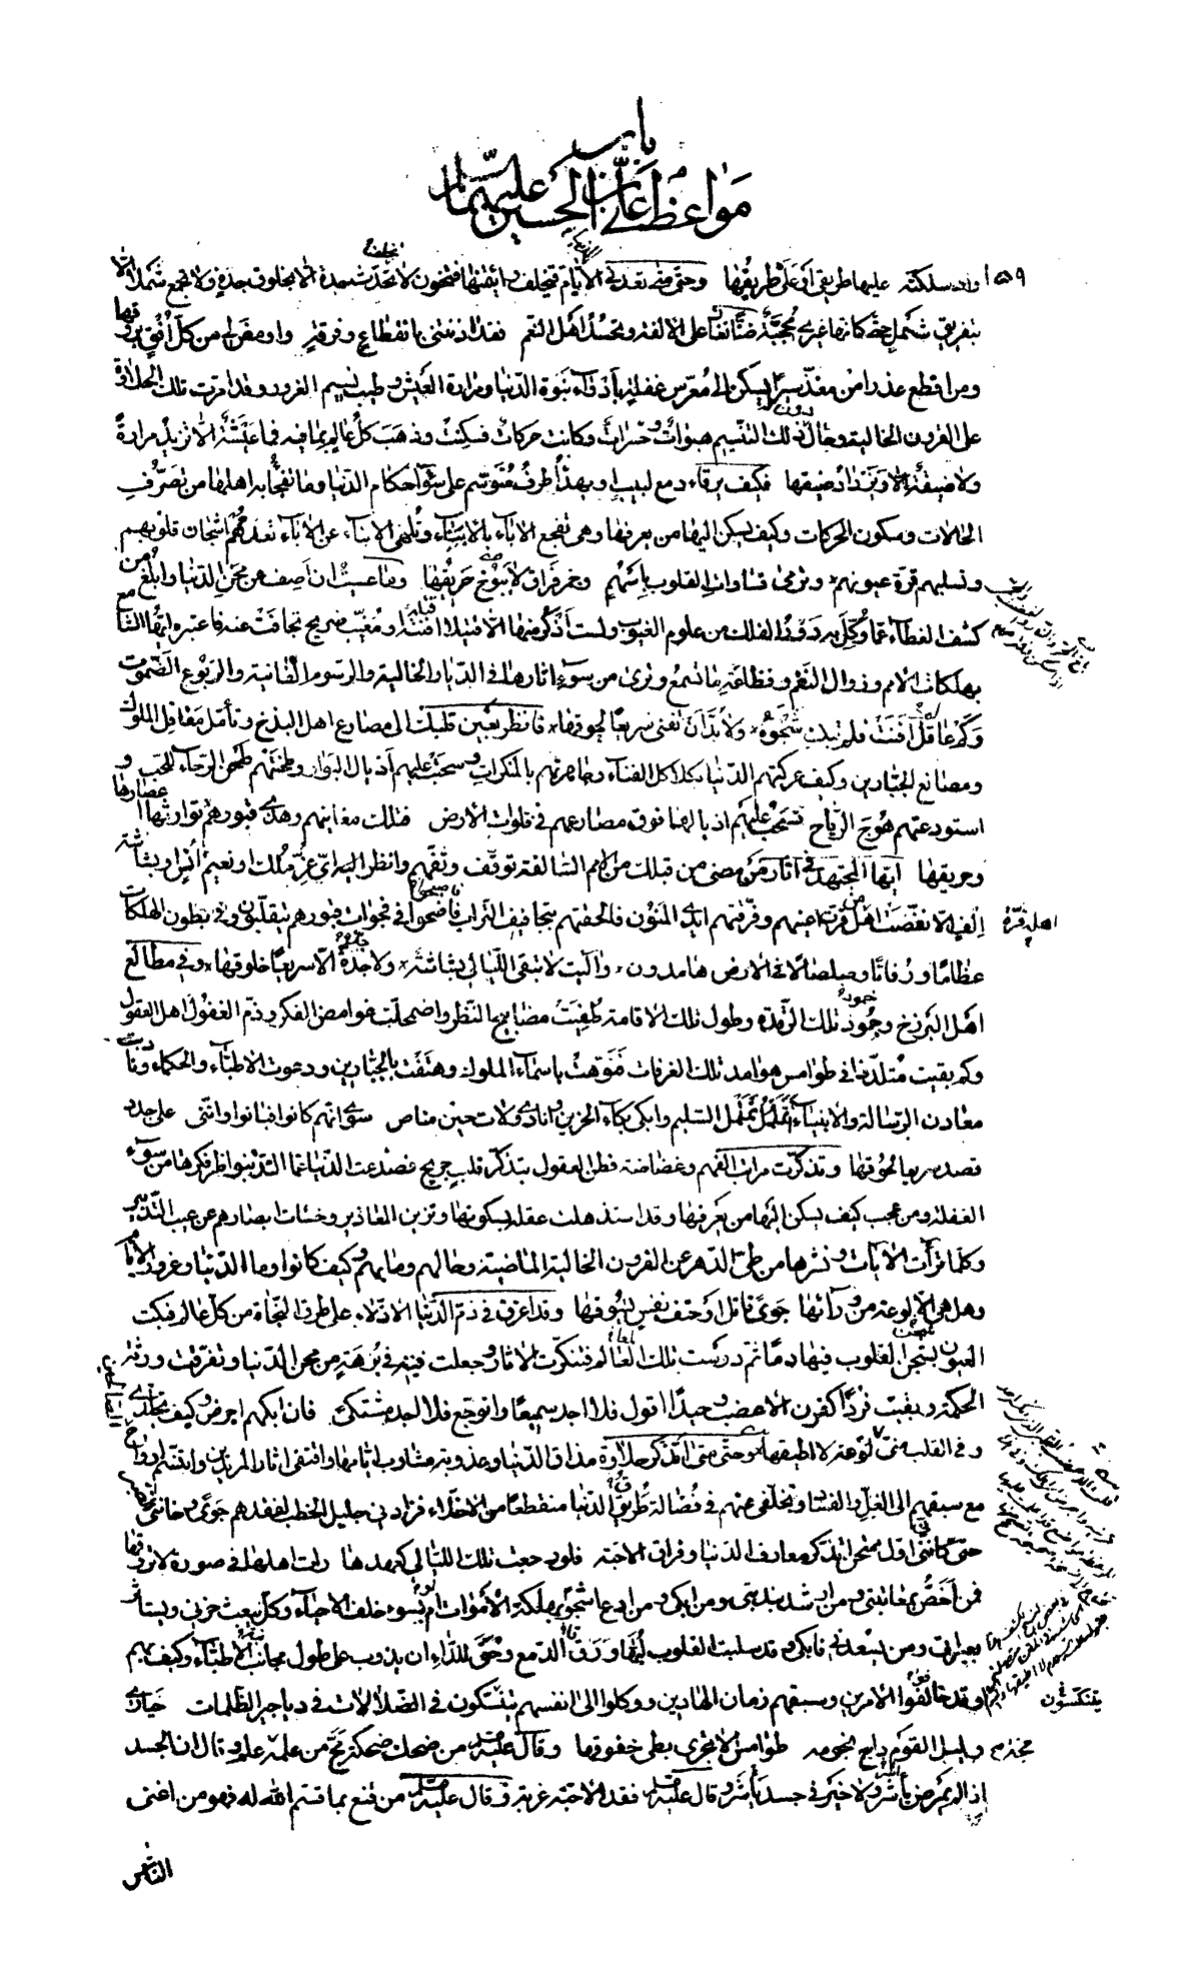 باب
مواعظ علي بن الحسين عليهما السلام
١٥٩ وان سلكته عليها طريقي او على طريقها وحتى متى تعدني الايام فتخلف وائتمنها فتخون لا تحدث جدة الا بخلوق جدة ولا تجمع شملا الا
بتفريق شمل حتى كانها غيرى محجبة ضنا تغار على الالفة وتحسد اهل النعم فقد اذنتنى بانقطاع وفرقة واومض لى من كل افق بروقها
ومن اقطع عذرا من مغذ سيرا يسكن الى معرس غفلة بأدواء نبوة الدنيا ومرارة العيش وطيب نسيم الغرور وقد امرت تلك الحلاوة
على القرون الخالية وحال دون ذلك النسيم هبوات وحسرات وكانت حركات فسكنت وذهب كل عالم بما فيه فما عيشة الا تزيد مرارة
ولا ضيقة الا ويزداد ضيقها فكيف يرقاء دمع لبيب او يهدأ طرف متوسم على سوء احكام الدنيا وما تفجأ به اهلها من تصرف
الحالات وسكون الحركات وكيف يسكن اليها من يعرفها وهى تفجع الاباء بالابناء وتلهى الابناء عن الاباء تعدمهم اشجان قلوبهم
وتسلبهم قرة عيونهم وترمى قساوات القلوب باسهم وجمر فراق لا يبوخ حريقها وما عسيت ان اصف من محن الدنيا وابلغ من
كشف الغطاء عما وكل به دور الفلك من علوم الغيوب ولست اذكر منها الا قتيلا افنته او مغيب ضريح تجافت عنه فاعتبر ايها السامع
بهلكات الامم وزوال النعم وفظاعة ما تسمع وترى من سوء اثارها فى الديار الخالية والرسوم الفانية والربوع الصموت
وكم عاقل افنت فلم تبك شجوه ولا بد ان تفنى سريعا لحوقها فانظر بعين قلبك الى مصارع اهل البذخ وتأمل معاقل الملوك
ومصانع الجبارين وكيف عركتهم الدنيا بكلاكل الفناء وجاهرتهم بالمنكرات وسحبت عليهم اذيال البوار وطحنتهم طحن الرحاء للحب و
استودعتهم هوج الرياح تسحب عليهم اذيالها فوق مصارعهم فى فلوات الارض فتلك مغانيهم وهذى قبورهم توارثها اعصارها
وحريقها ايها المجتهد فى اثار من مضى من قبلك من الامم السالفة توقف وتفهم وانظر اي عز ملك او نعيم انس او بشاشة
اِلف الا نغصت اهله قرة اعينهم وفرقتهم ايدى المنون فالحقتهم بتجافيف التراب فاضحوا فى فجوات قبورهم يتقلبون وفى بطون الهلكات
عظاما ورفاتا وصلصالا فى الارض هامدون واليت لا تبقى الليالى بشاشة ولا جدة الا سريعا خلوقها وفى مطالع
اهل البرزخ وخمود تلك الرقدة وطول تلك الاقامة طفيت مصابيح النظر واضمحلت غوامض الفكر وذم الغفول اهل العقول
وكم بقيت متلذذا فى طوامس هوامد تلك الغرفات فنوهت باسماء الملوك وهتفت بالجبارين ودعوت الاطباء والحكماء وناديت
معادن الرسالة والانبياء اتململ تململ السليم وابكى بكاء الحزين وانادى ولات حين مناص سوى انهم كانوا فبانوا وانّنى على جدد
قصد سريعا لحوقها وتذكرت مراتب الفهم وغضاضة فطن العقول بتذكر قلب جريح فصدعت الدنيا عما التذ بنواظر فكرها من سوء
الغفلة ومن عجب كيف يسكن اليها من يعرفها وقد استذهلت عقله بسكونها وتزين المعاذير وخسأت ابصارهم عن عيب التدبير
وكلما تراءت الايات ونشرها من طى الدهر عن القرون الخالية الماضية وحالهم ومابهم وكيف كانوا وما الدنيا وغرور الايام
وهل هى الا لوعة من ورائها جوى قاتل او حتف نفس يسوقها وقد اغرق فى ذم الدنيا الادلاء على طرق النجاة من كل عالم فبكت
العيون بشجن القلوب فيها دما ثم درست تلك المعالم فتنكرت الاثار وجعلت فى برهة من محن الدنيا وتفرقت ورثة
الحكمة وبقيت فردا كقرن الاعضب وحيدا اقول فلا اجد سميعا واتوجع فلا اجد مشتكى فان ابكهم اجرض وكيف تجلدى
وفى القلب منى لوعة لا اطيقها وحتى متى اتذكر حلاوة مذاق الدنيا وعذوبة مشارب ايامها واقتفى اثار المريدين واتنسم ارواح
مع سبقهم الى الغل والفساد وتخلفى عنهم فى فضالة طرق الدنيا منقطعا من الاخلاء فزادنى جليل الخطب لفقدهم جوى وخاننى الصبر
حتى كاننى اول ممتحن اتذكر معارف الدنيا وفراق الاحبة فلو رجعت تلك الليالى كعهدها رأت اهلها فى صورة لا تروقها
فمن اخص بمعاتبتى ومن ارشد بندبتى ومن ابكى ومن ادع اشجو بهلكة الاموات ام بسوء خلف الاحياء وكل يبعث حزنى ويستأثر
بعبراتى ومن يسعدنى فابكى وقد سلبت القلوب لبها ورق الدمع وحق للداء ان يذوب على طول مجانبة الاطباء وكيف بهم
وقد خالفوا الامرين وسبقهم زمان الهادين ووكلوا الى انفسهم يتنسكون فى الضلالات فى دياجير الظلمات حيارى
وليل القوم داج نجومه طوامس لا تجرى بطى خفوقها وقال عليه السلام من ضحك ضحكة مج من علمه علم وقال ان الجسد
اذا لم يمرض ياشر ولا خير فى جسد ياشر وقال عليه السلام فقد الاحبة غربة وقال عليه السلام من قنع بما قسم الله له فهو من اغنى
الناس
اهله قرة
يتنكسون